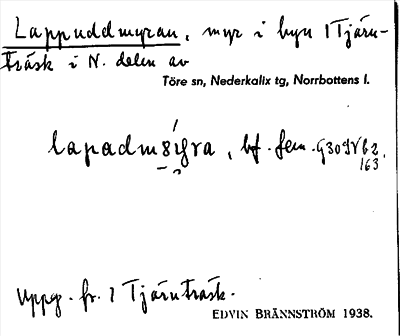 Lappuddmyran, myr i byn 1 Tjärn-
träsk i N. delen av
Töre sn, Nederkalix tg, Norrbottens l.
bf. fem.
163.
Uppg. fr. 1 Tjärnträsk.
EDVIN BRÄNNSTRÖM 1938.